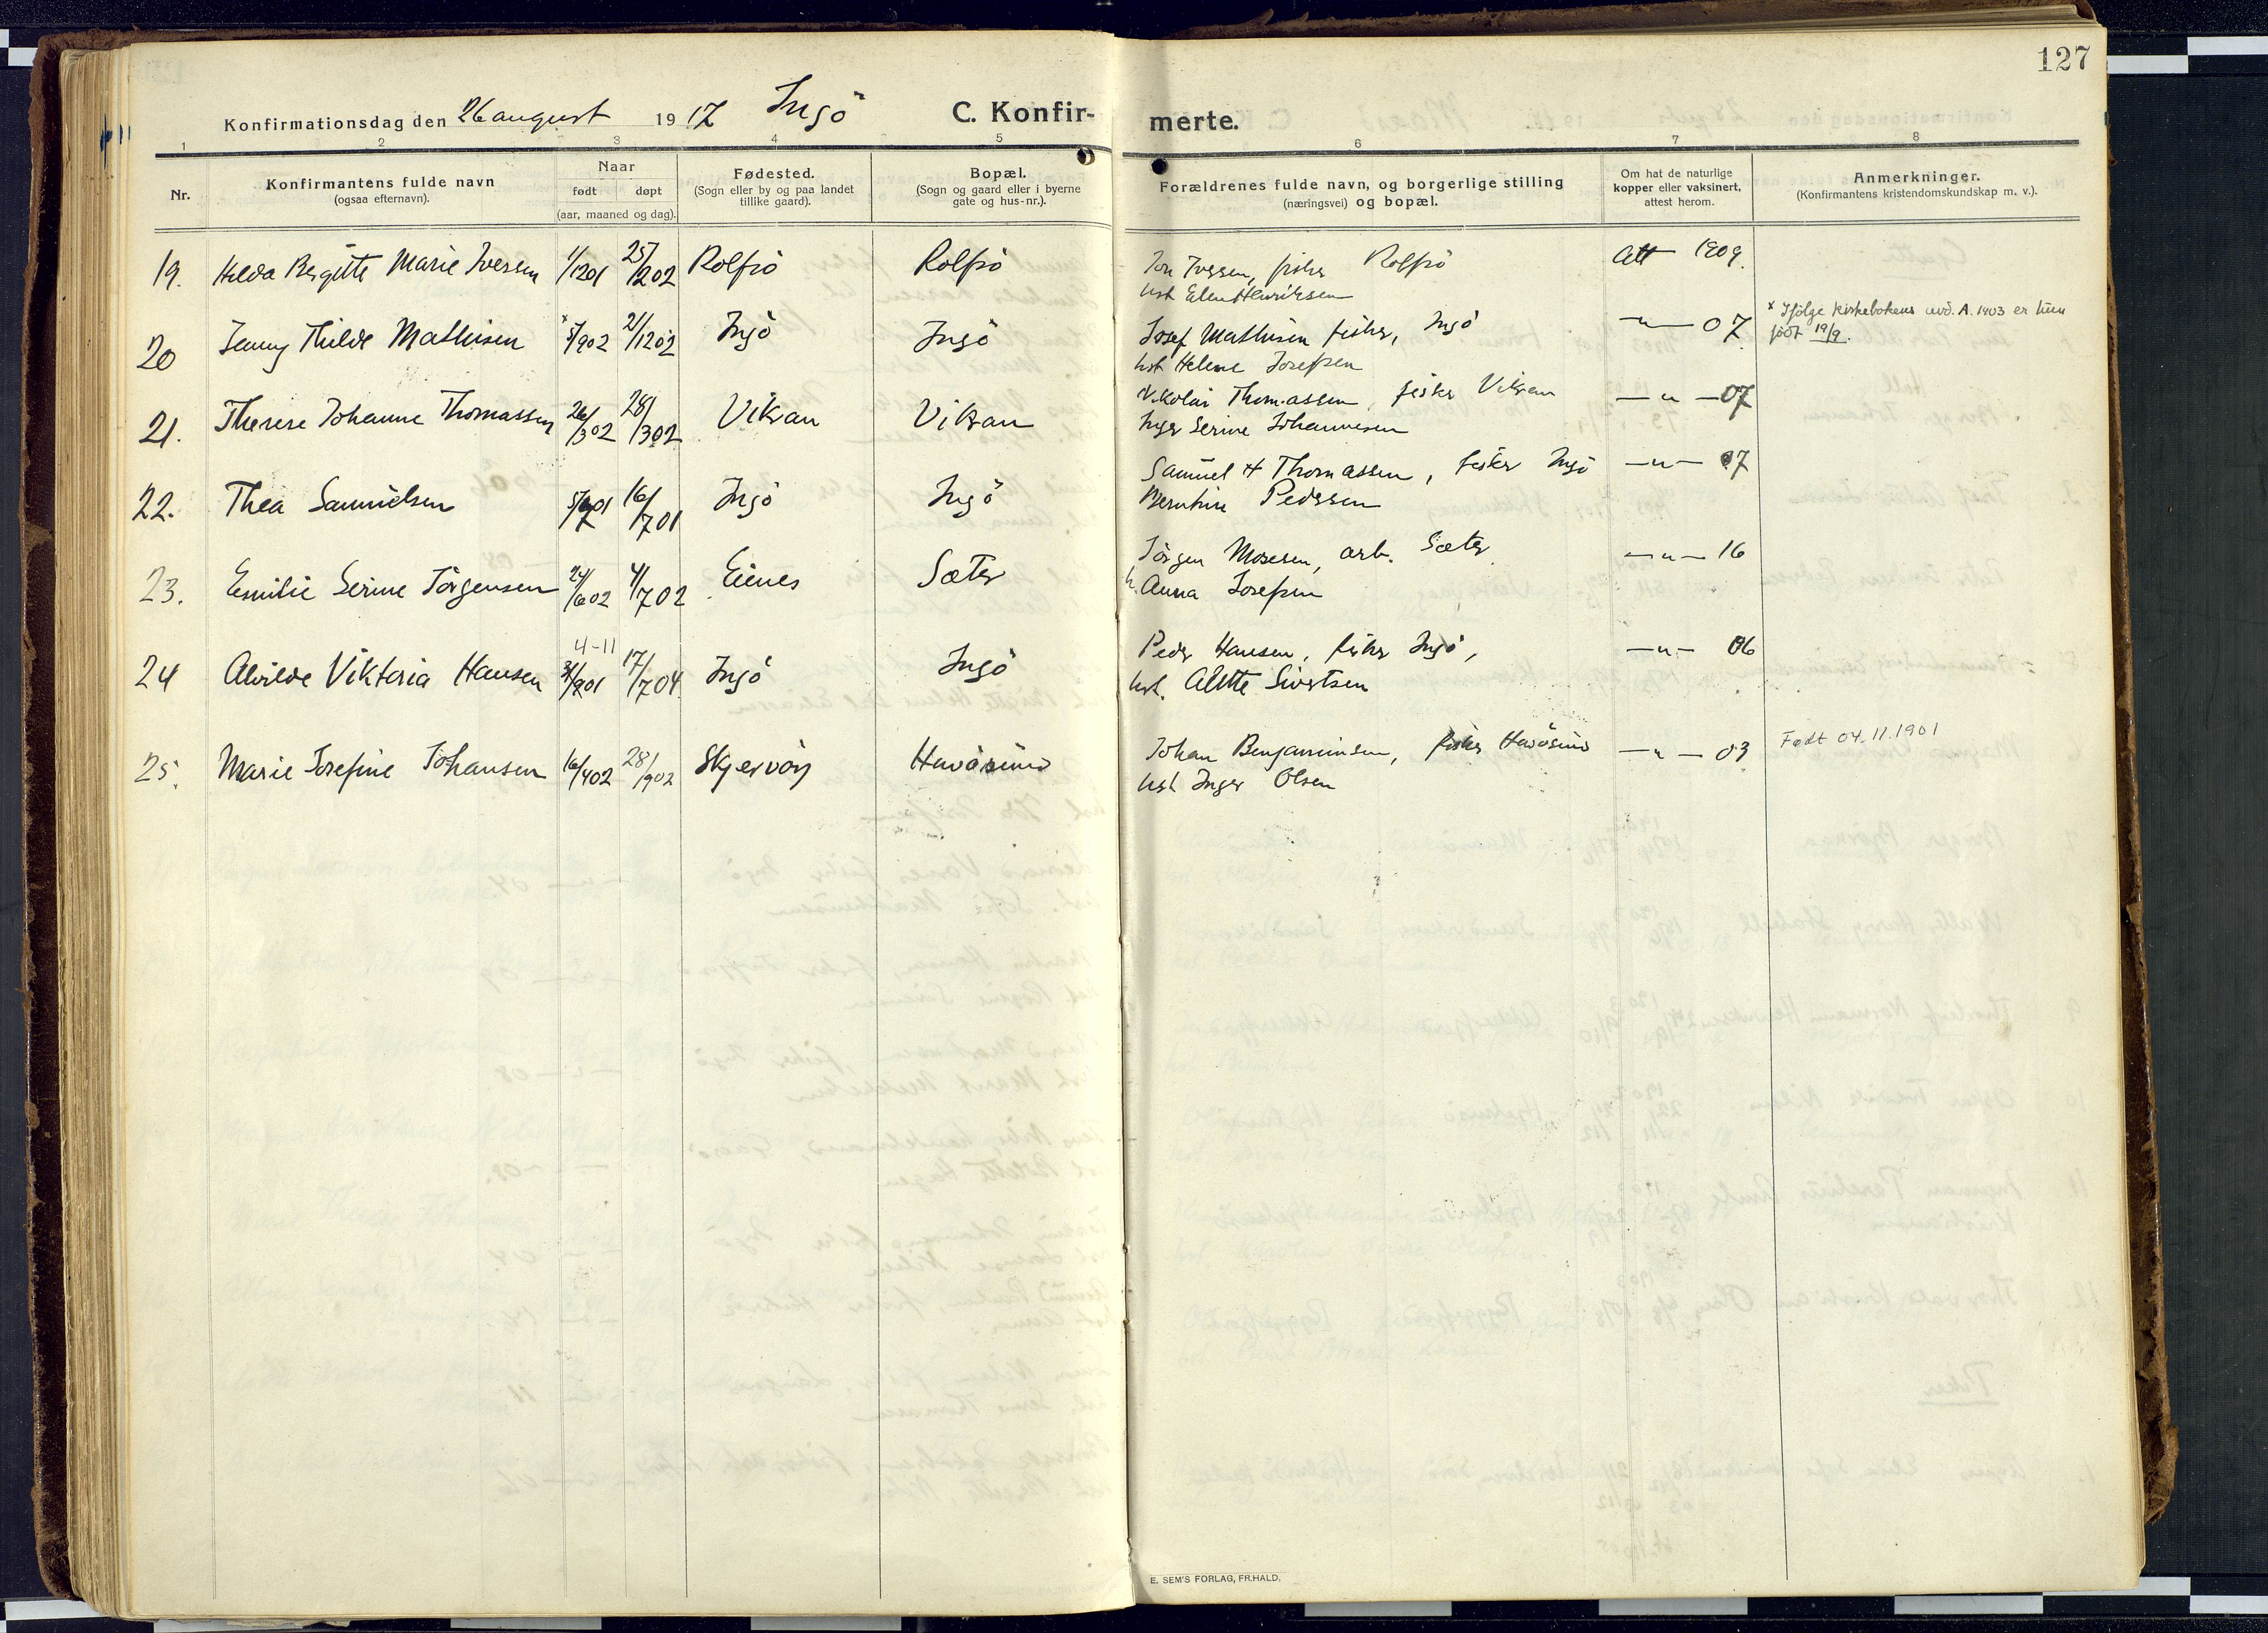 127
Konfirmationsdag den 26 august 1917 Ingö C. Konfir-merte.
1 2 3 4 5 6 7 8
Nr.
Konfirmantens fulde navn
(ogsaa efternavn).
Naar
født døpt
(aar, maaned og dag).
Fødested.
(Sogn eller by og paa landet
tillike gaard).
Bopæl.
(Sogn og gaard eller i byerne
gate og hus-nr.).
Forældrenes fulde navn, og borgerlige stilling
(næringsvei) og bopæl.
Om hat de naturlige
kopper eller vaksinert,
attest herom.
Anmerkninger.
(Konfirmantens kristendomskundskap m. v.).
19. Hilda Bergitte Marie Iversen 1/1201 25/1202 Rolfsö Rolfsö Jon Iversen, fisker Rolfsö Att 1909.
hst Elen Henriksen
20 Jenny Thilde Mathisen x 5/902 21/1202 Ingö Ingö Josef Mathisen fisker, Ingö —"— 07 x Ifölge kirkebokens avd. A. 1903 er hun
født 19/9.
hst Helene Josefsen
21. Therese Johanne Thomassen 26/302 28/302 Vikran Vikran Nikolai Thomassen, fisker Vikran —"— 07
Inger Serine Johannesen
22. Thea Samuelsen 5/701 16/701 Ingö Ingö Samuel H Thomassen, fisker Ingö —"— 07
Berntine Pedersen
23. Emilie Serine Jörgensen 24/602 4/702 Eines Sæter Jörgen Mosesen, arb. Sæter —"— 16
h. Anna Josefsen
4-11
24 Alvilde Viktoria Hansen 31/901 17/704 Ingö Ingö Peder Hansen, fisker Ingö, —"— 06
hst. Alette Sivertsen
25. Marie Josefine Johansen 16/402 28/902 Skjervöy Havösund Johan Benjaminsen, fisker Havösund —"— 03 Født 04.11.1901
hst Inger Olsen
E. SEM'S FORLAG, FR.HALD.